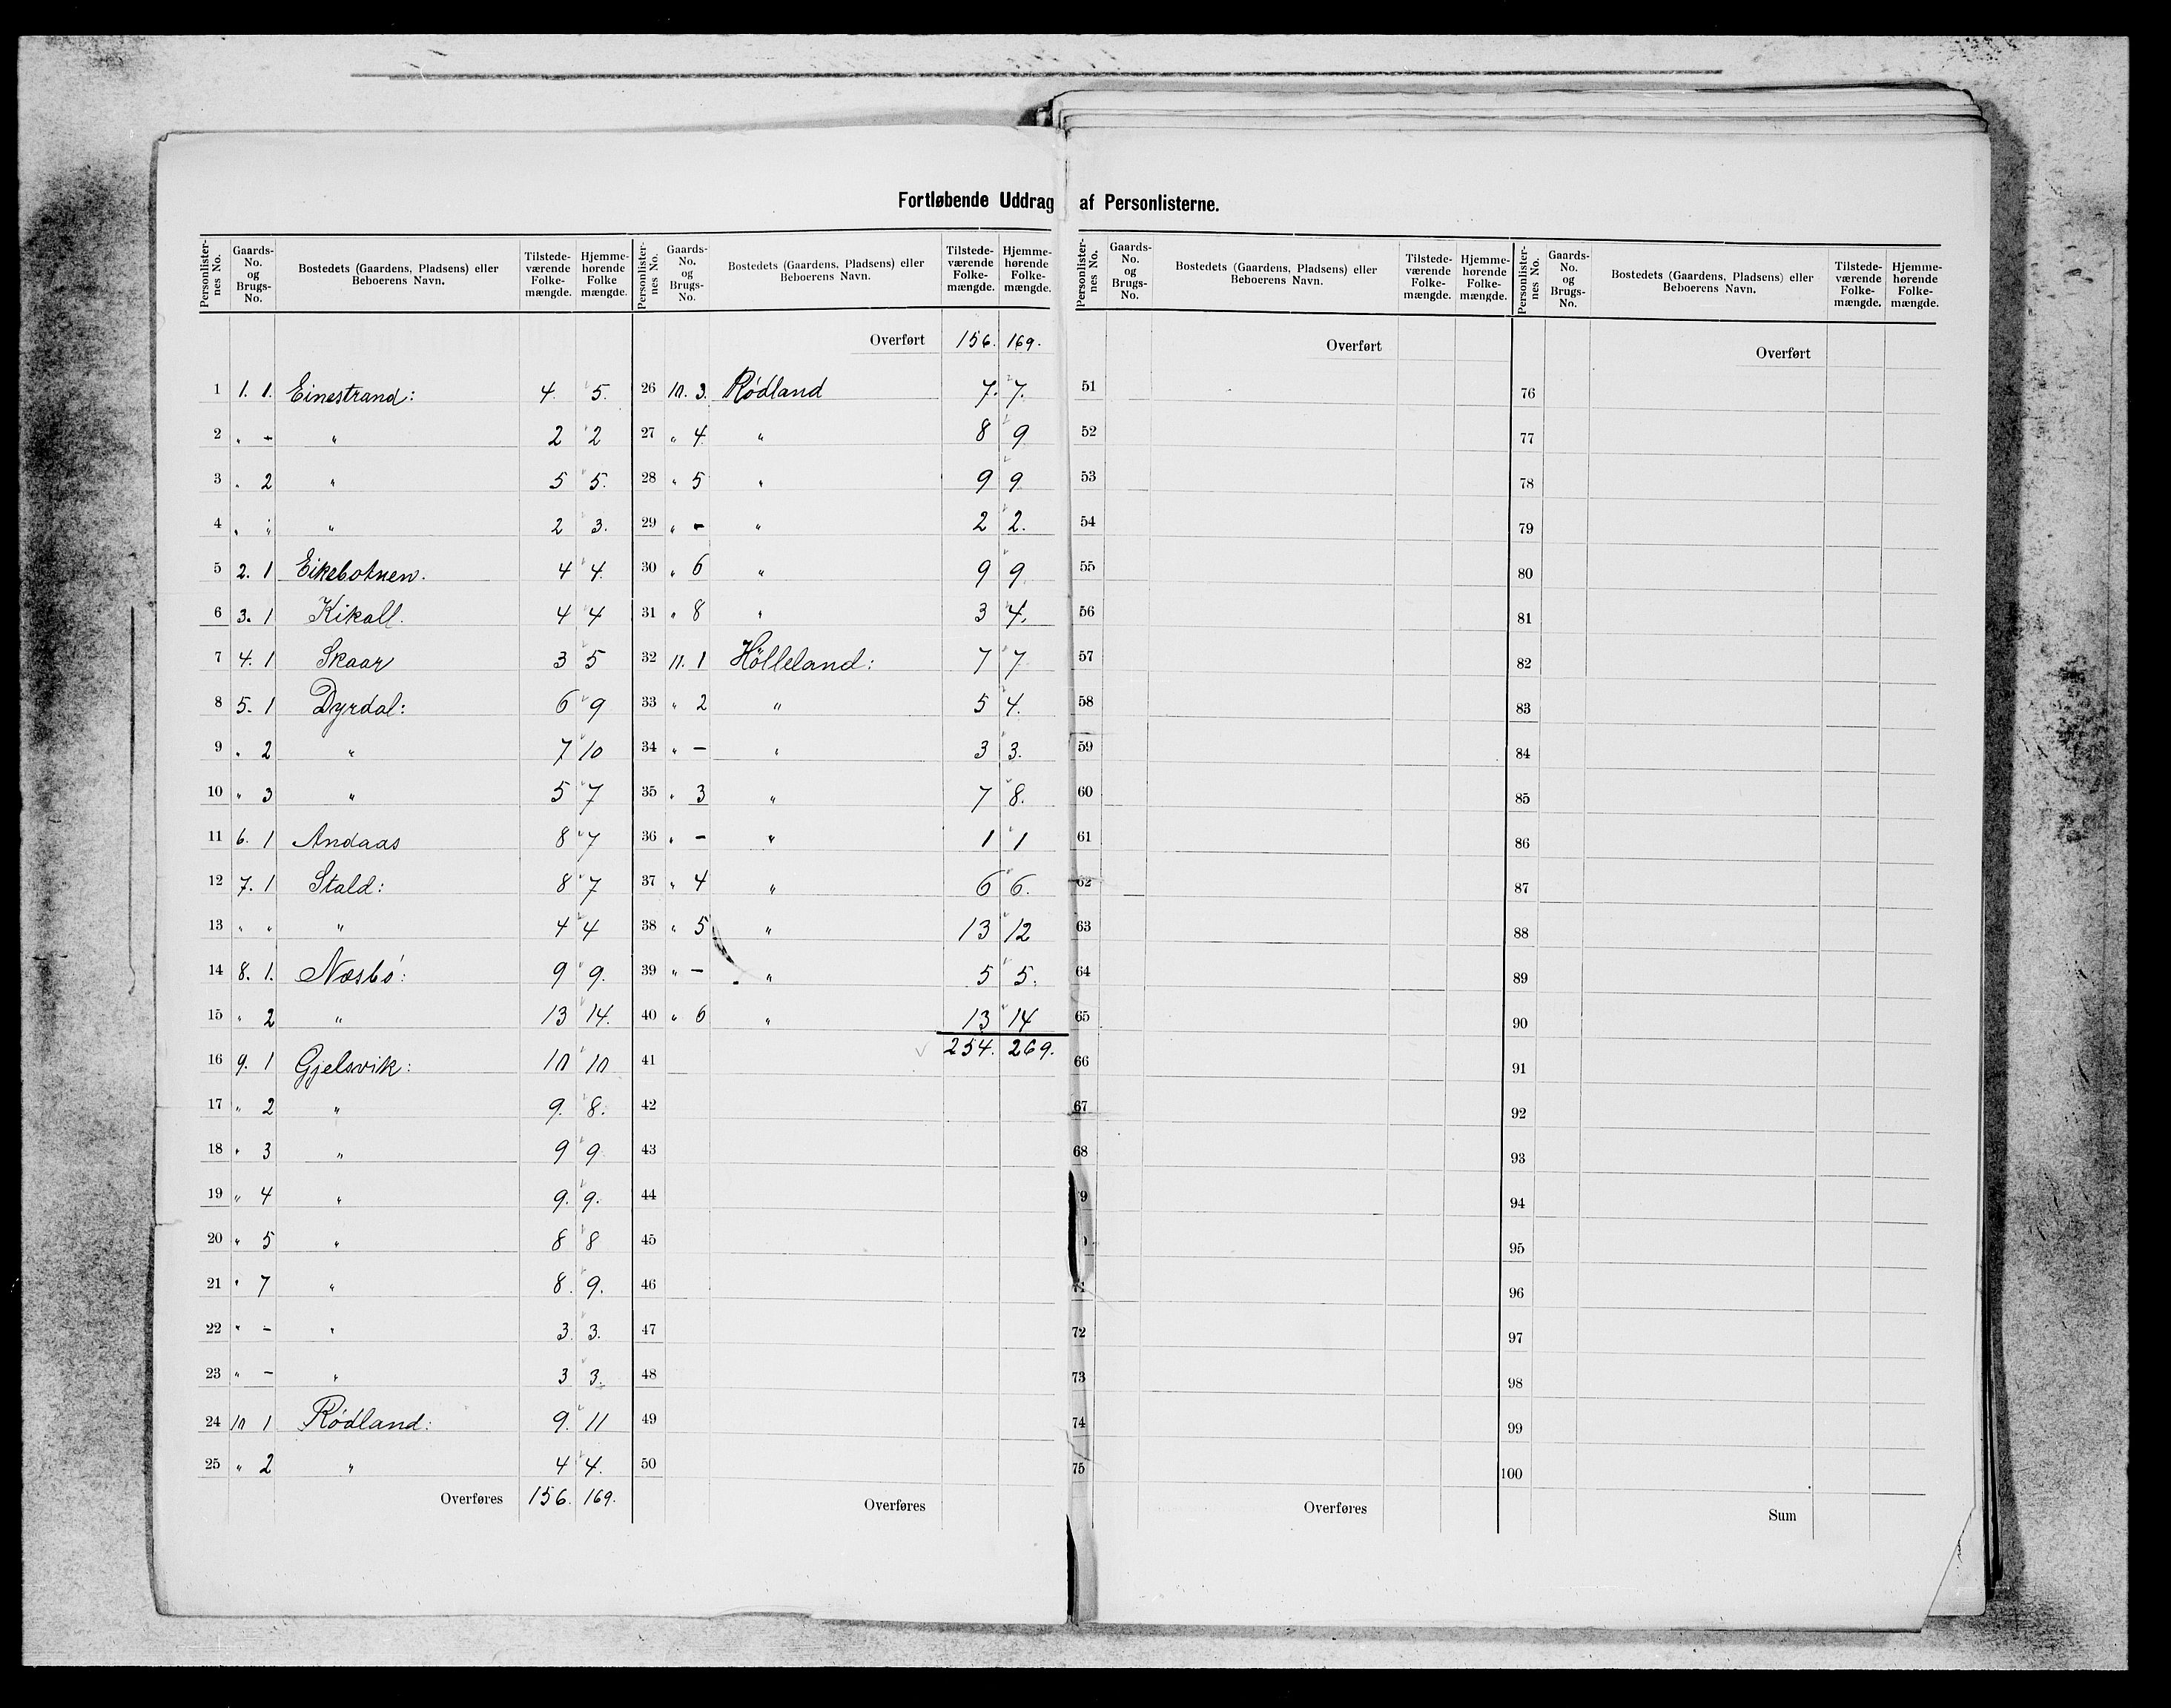 Fortløbende Uddrag af Personlisterne.
Personlister-nes No. Gaards-No. og Brugs-No. Bostedets (Gaardens, Pladsens) eller Beboerens Navn. Tilstede-værende Folke-mængde. Hjemme-hørende Folke mængde.
1 1. 1. Einestrand: 4. 5.
2 „ - „ 2 2
3 „ 2 „ 5 5.
4 „ „ „ 2 3.
5 2. 1 Eikebotnen. 4 4.
6 3. 1 Kikall. 4 4
7 4. 1 Skaar 3 5
8 5. 1 Dyrdal: 6 9
9 „ 2 „ 7 10
10 „ 3 „ 5 7
11 6. 1 Andaas 8 7
12 7. 1 Stald: 8 7
13 „ „ „ 4 4
14 8. 1. Næsbö: 9 9.
15 „ 2 „ 13 14.
16 9. 1 Gjelsvik: 10 10
17 „ 2 „ 9. 8.
18 „ 3 „ 9 9
19 „ 4 „ 9. 9.
20 „ 5 „ 8 8
21 „ 7 „ 8. 9.
22 „ - „ 3. 3.
23 „ - „ 3 3.
24 10 1 Rödland: 9. 11
25 „ 2 „ 4 4.
Overføres 156. 169.
Personlister-nes No. Gaards-No. og Brugs-No. Bostedets (Gaardens, Pladsens) eller Beboerens Navn. Tilstede-værende Folke-mængde. Hjemme-hørende Folke-mængde.
Overført 156. 169.
26 10. 3. Rödland 7. 7.
27 „ 4 „ 8 9
28 „ 5 „ 9 9
29 „ - „ 2 2.
30 „ 6 „ 9 9
31 „ 8 „ 3 4.
32 11. 1 Hölleland: 7 7
33 „ 2 „ 5 4.
34 „ - „ 3 3.
35 „ 3 „ 7 8.
36 „ - „ 1 1
37 „ 4 „ 6 6.
38 „ 5 „ 13 12
39 „ - „ 5 5.
40 „ 6 „ 13 14
41 254. 269.
42
43
44
45
46
47
48
49
50
Overføres
Personlister-nes No. Gaards-No. og Brugs-No. Bostedets (Gaardens, Pladsens) eller Beboerens Navn. Tilstede-værende Folke-mængde. Hjemme-hørende Folke-mængde.
Overført
51
52
53
54
55
56
57
58
59
60
61
62
63
64
65
66
67
68
9
71
72
73
74
75
Overføres
Personlister-nes No. Gaards-No. og Brugs-No. Bostedets (Gaardens, Pladsens) eller Beboerens Navn. Tilstede-værende Folke-mængde. Hjemme-hørende Folke-mængde.
Overført
76
77
78
79
80
81
82
83
84
85
86
87
88
89
90
91
92
93
94
95
96
97
98
99
100
Sum